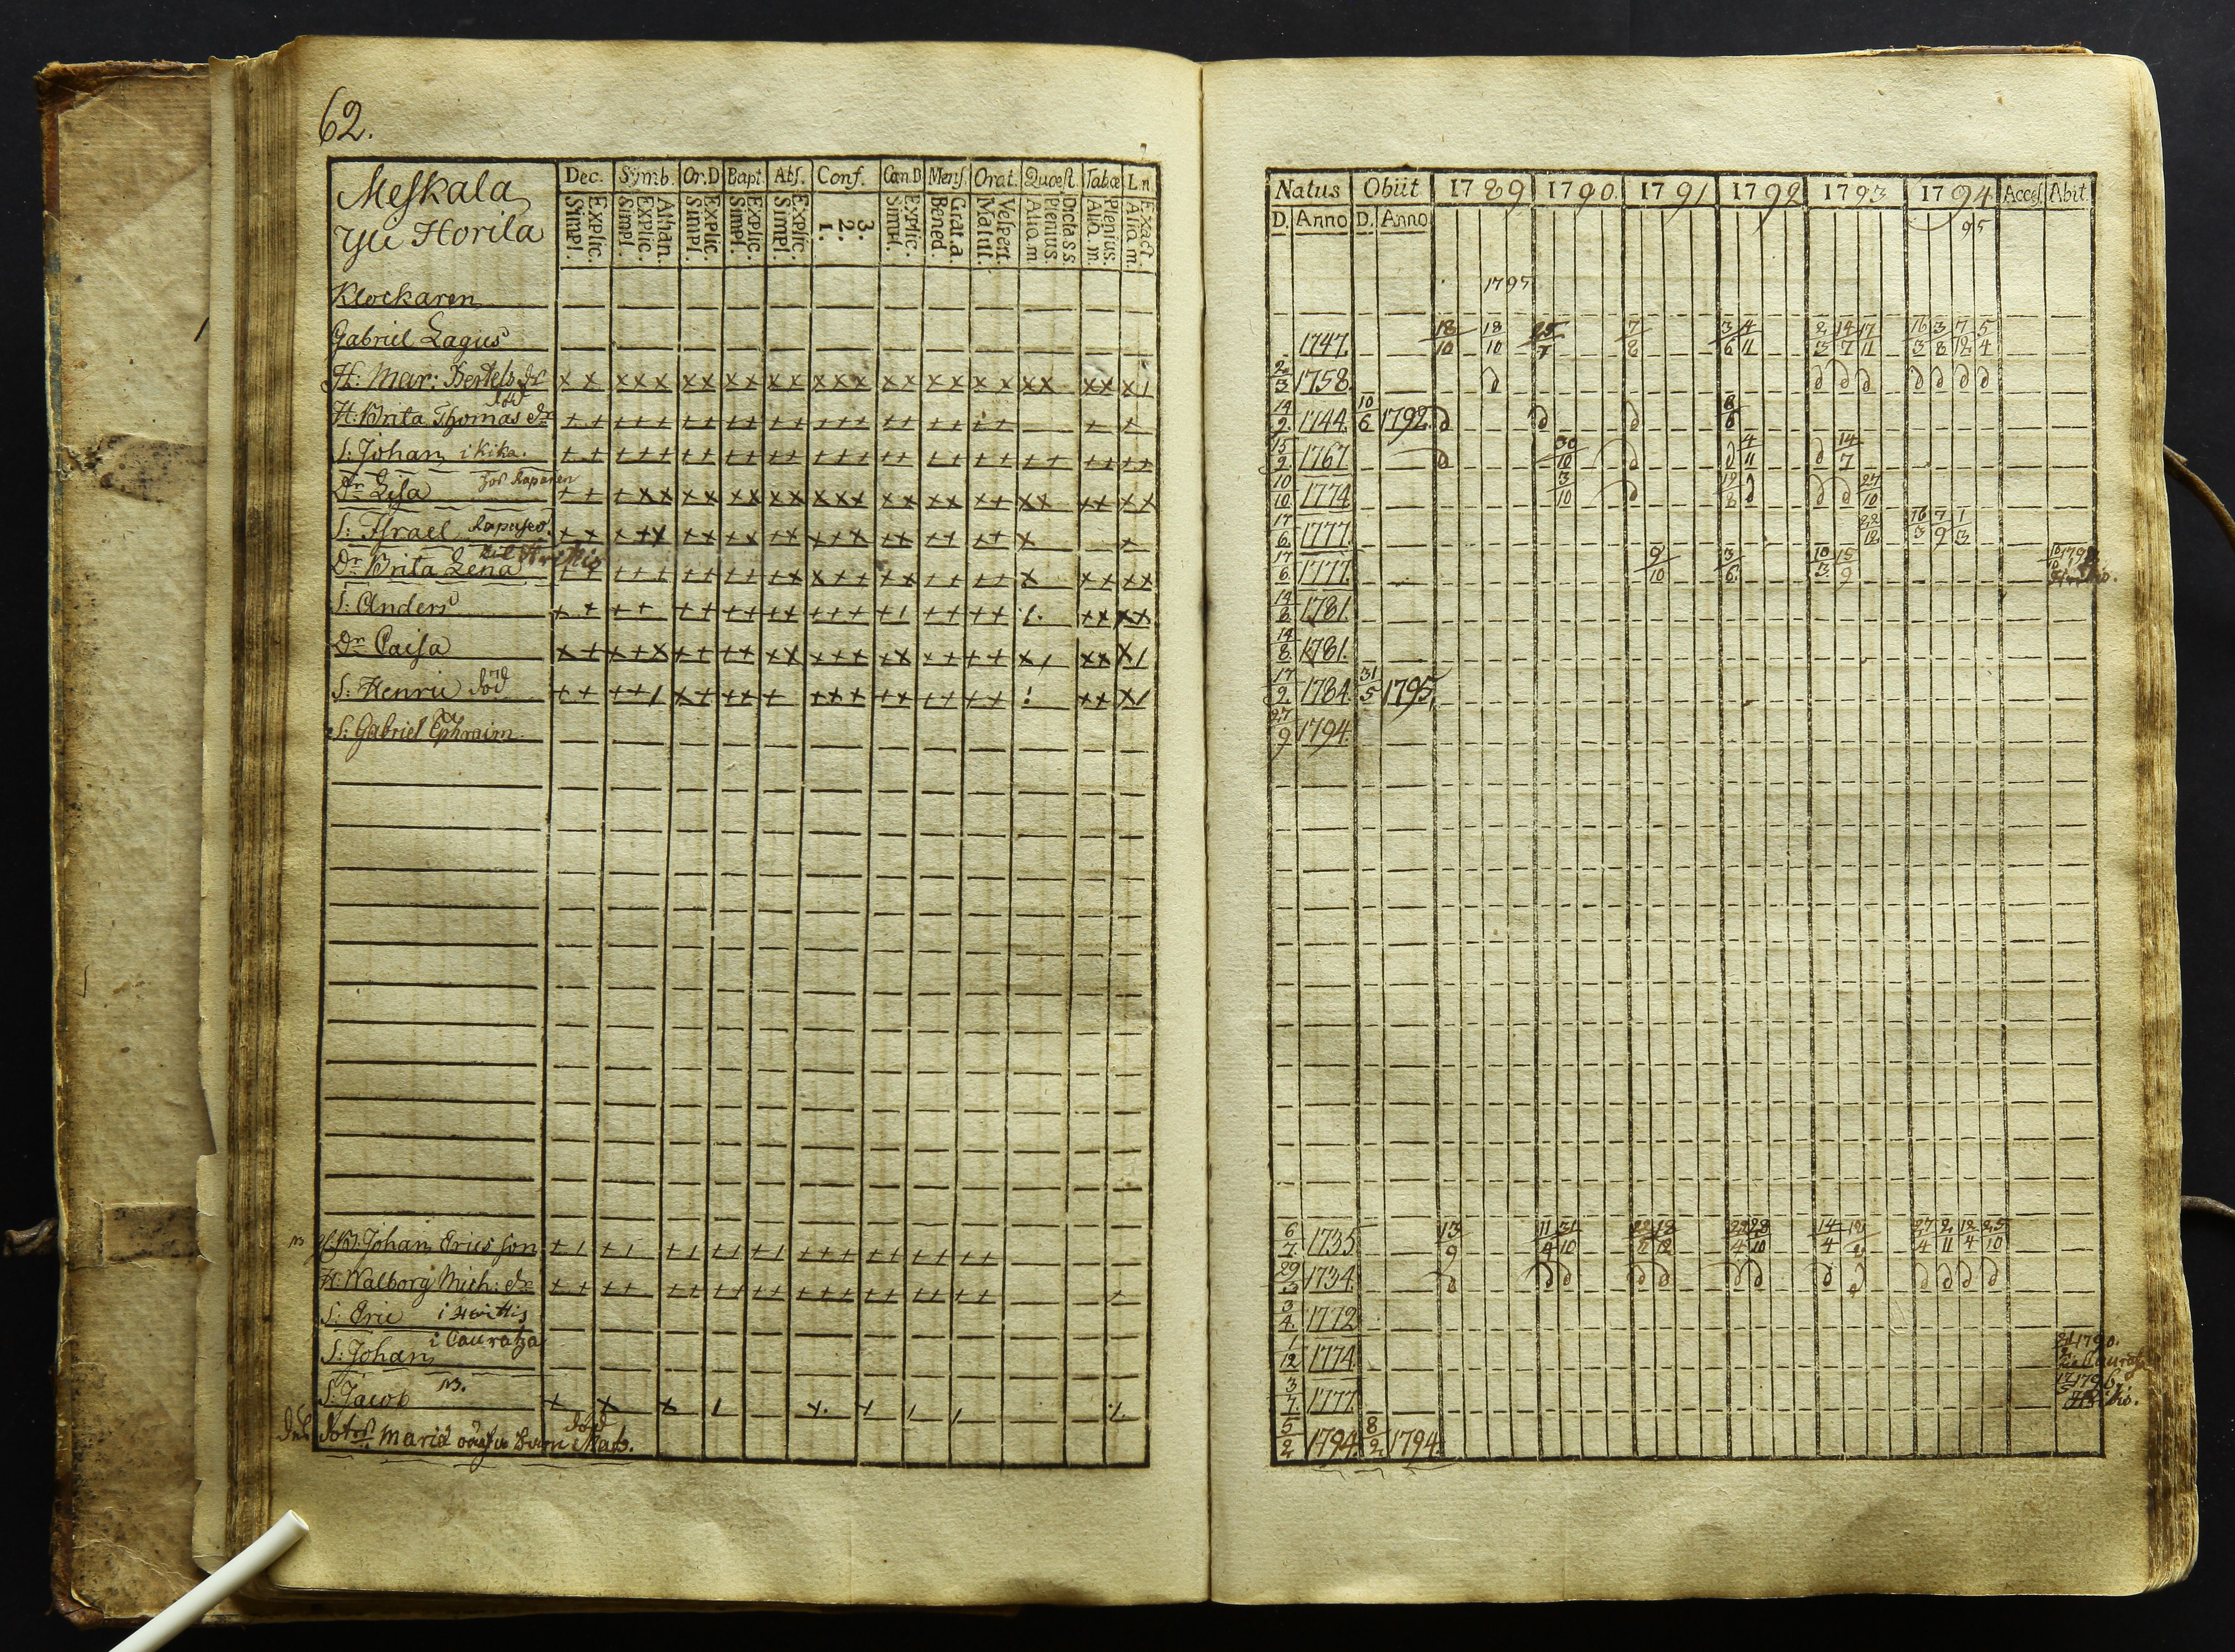 62.
Meskala
Yli Horila
Dec. Symb. Or.D Bapt. Abs. Conf. Cœn.D Mens. Orat. Quæst. Tabæ L.n.
Explic. Simpl. Athan. Explic. Simpl. Explic. Simpl. Explic. Simpl. Explic. Simpl. 3. 2. 1. Explic. Simpl. Grat.a Bened. Vespert. Matut. Dicta s s. Plenius. Alio.m. Plenius. Alia.m. Exact. Alia m.
Klockaren
Gabriel Lagus
H: Mar: Bertels dr
död
H: Brita Thomas dr
S: Johan i Kika.
Dr Lisa
S: Israel
Dr Brita Lena
S: Anders
Dr Caisa
S: Henric död
S: Gabriel Ephraim
Johan Erics son
H: Walborg Mich: dr
S: Eric
i Cauratza
S: Johan
S: Jacob
död
Maria Barn Mats.
Natus Obiit 1789 1790. 1791 1792 1793 1794 Access. Abit.
D. Anno D. Anno 95
1795
1747. 18/10 18/10 25/7 7/8 3/6 4/11 2/3 14/7 17/11 16/3 3/8 7/12 5/4
2/3 1758.
14/2 1744. 10/6 1792. 8/6
15/2 1767 30/10 4/11 14/7
10/10 1774 3/10 12/8 27/10
17/6 1777. 22/12 16/3 7/9 1/3
17/6 1777. 9/10 3/6 10/3 15/9
14/8 1781.
14/8 1781.
17/2 1784. 31/5 1795,
27/9 1794.
6/7 1735 13/9 11/4 31/10 22/4 28/10 14/4 27/4 2/11 12/4 25/10
29/3 1734.
3/4 1772
1/12 1774. 1790.
3/7 1777. 1796.
5/2 1794. 8/2 1794